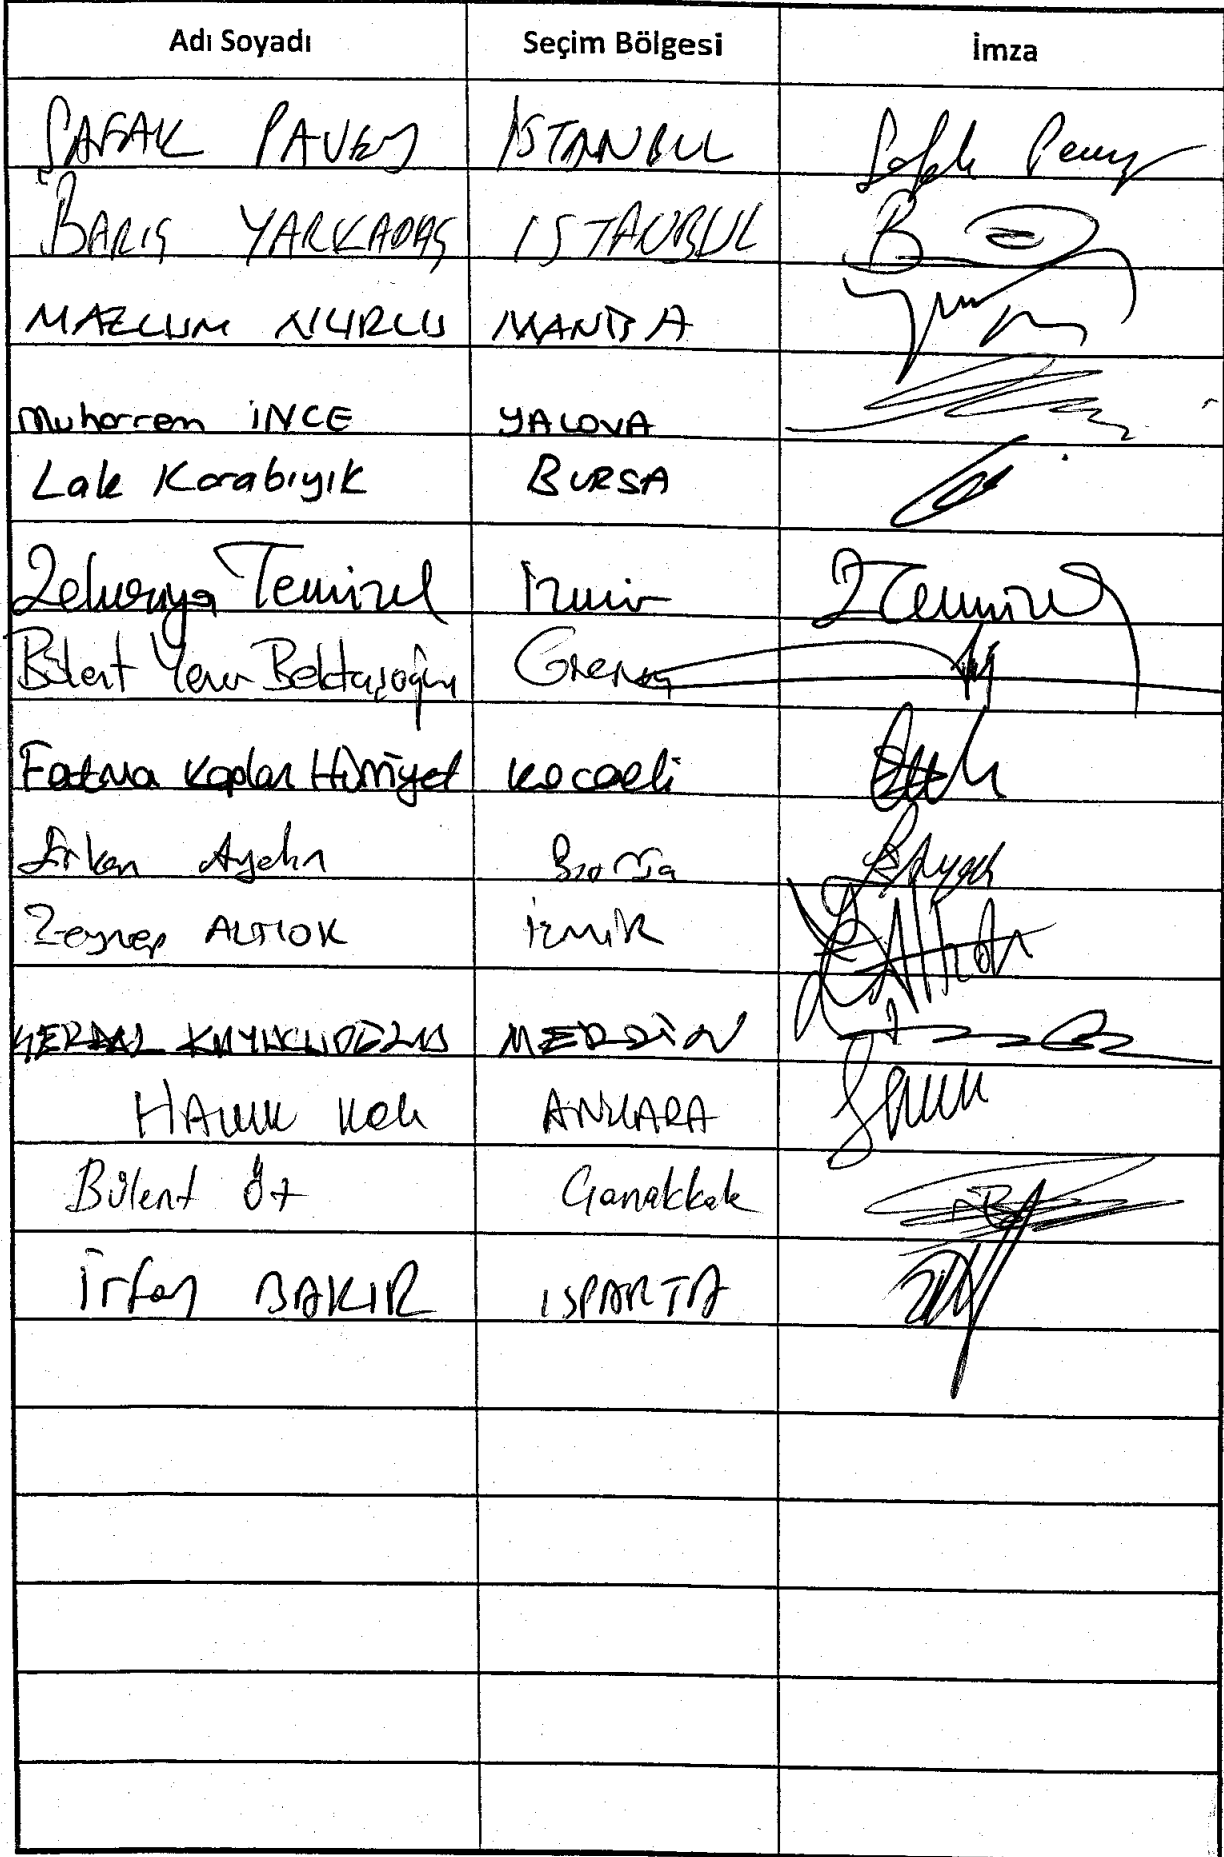 Adı Soyadı Seçim Bölgesi İmza
ŞAFAK PAVEY İSTANBUL Şafak Pavey
BARIŞ YARKADAŞ İSTANBUL B
MAZLUM NURLU MANİSA
Muharrem İNCE YALOVA
Lale Karabıyık BURSA
Zekeriya Temizel İzmir ZTemizel
Bülent Yener Bektaşoğlu Giresun
Fatma Kaplan Hürriyet Kocaeli
Erkan Aydın Bursa
Zeynep ALTIOK İzmir
SERDAL KUYUCUOĞLU MERSİN
HALUK Koç ANKARA
Bülent Öz Çanakkale
İrfan BAKIR ISPARTA